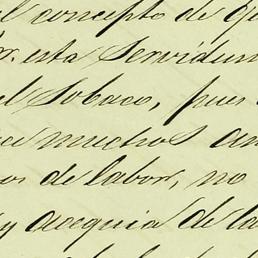 el concepto de qu
r. esta Servidum
el Tobaco, pues
ce muchos an
os de labor, no
y acequia de la